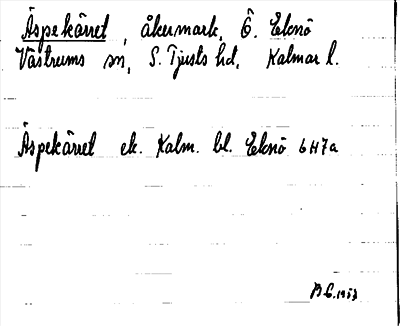 Äspekärret, åkermark, Ö. Eknö
Västrums sn, S. Tjusts hd, Kalmar l.
Äspekärret ek. Kalm. bl. Eknö 6H7a
B G. 1953